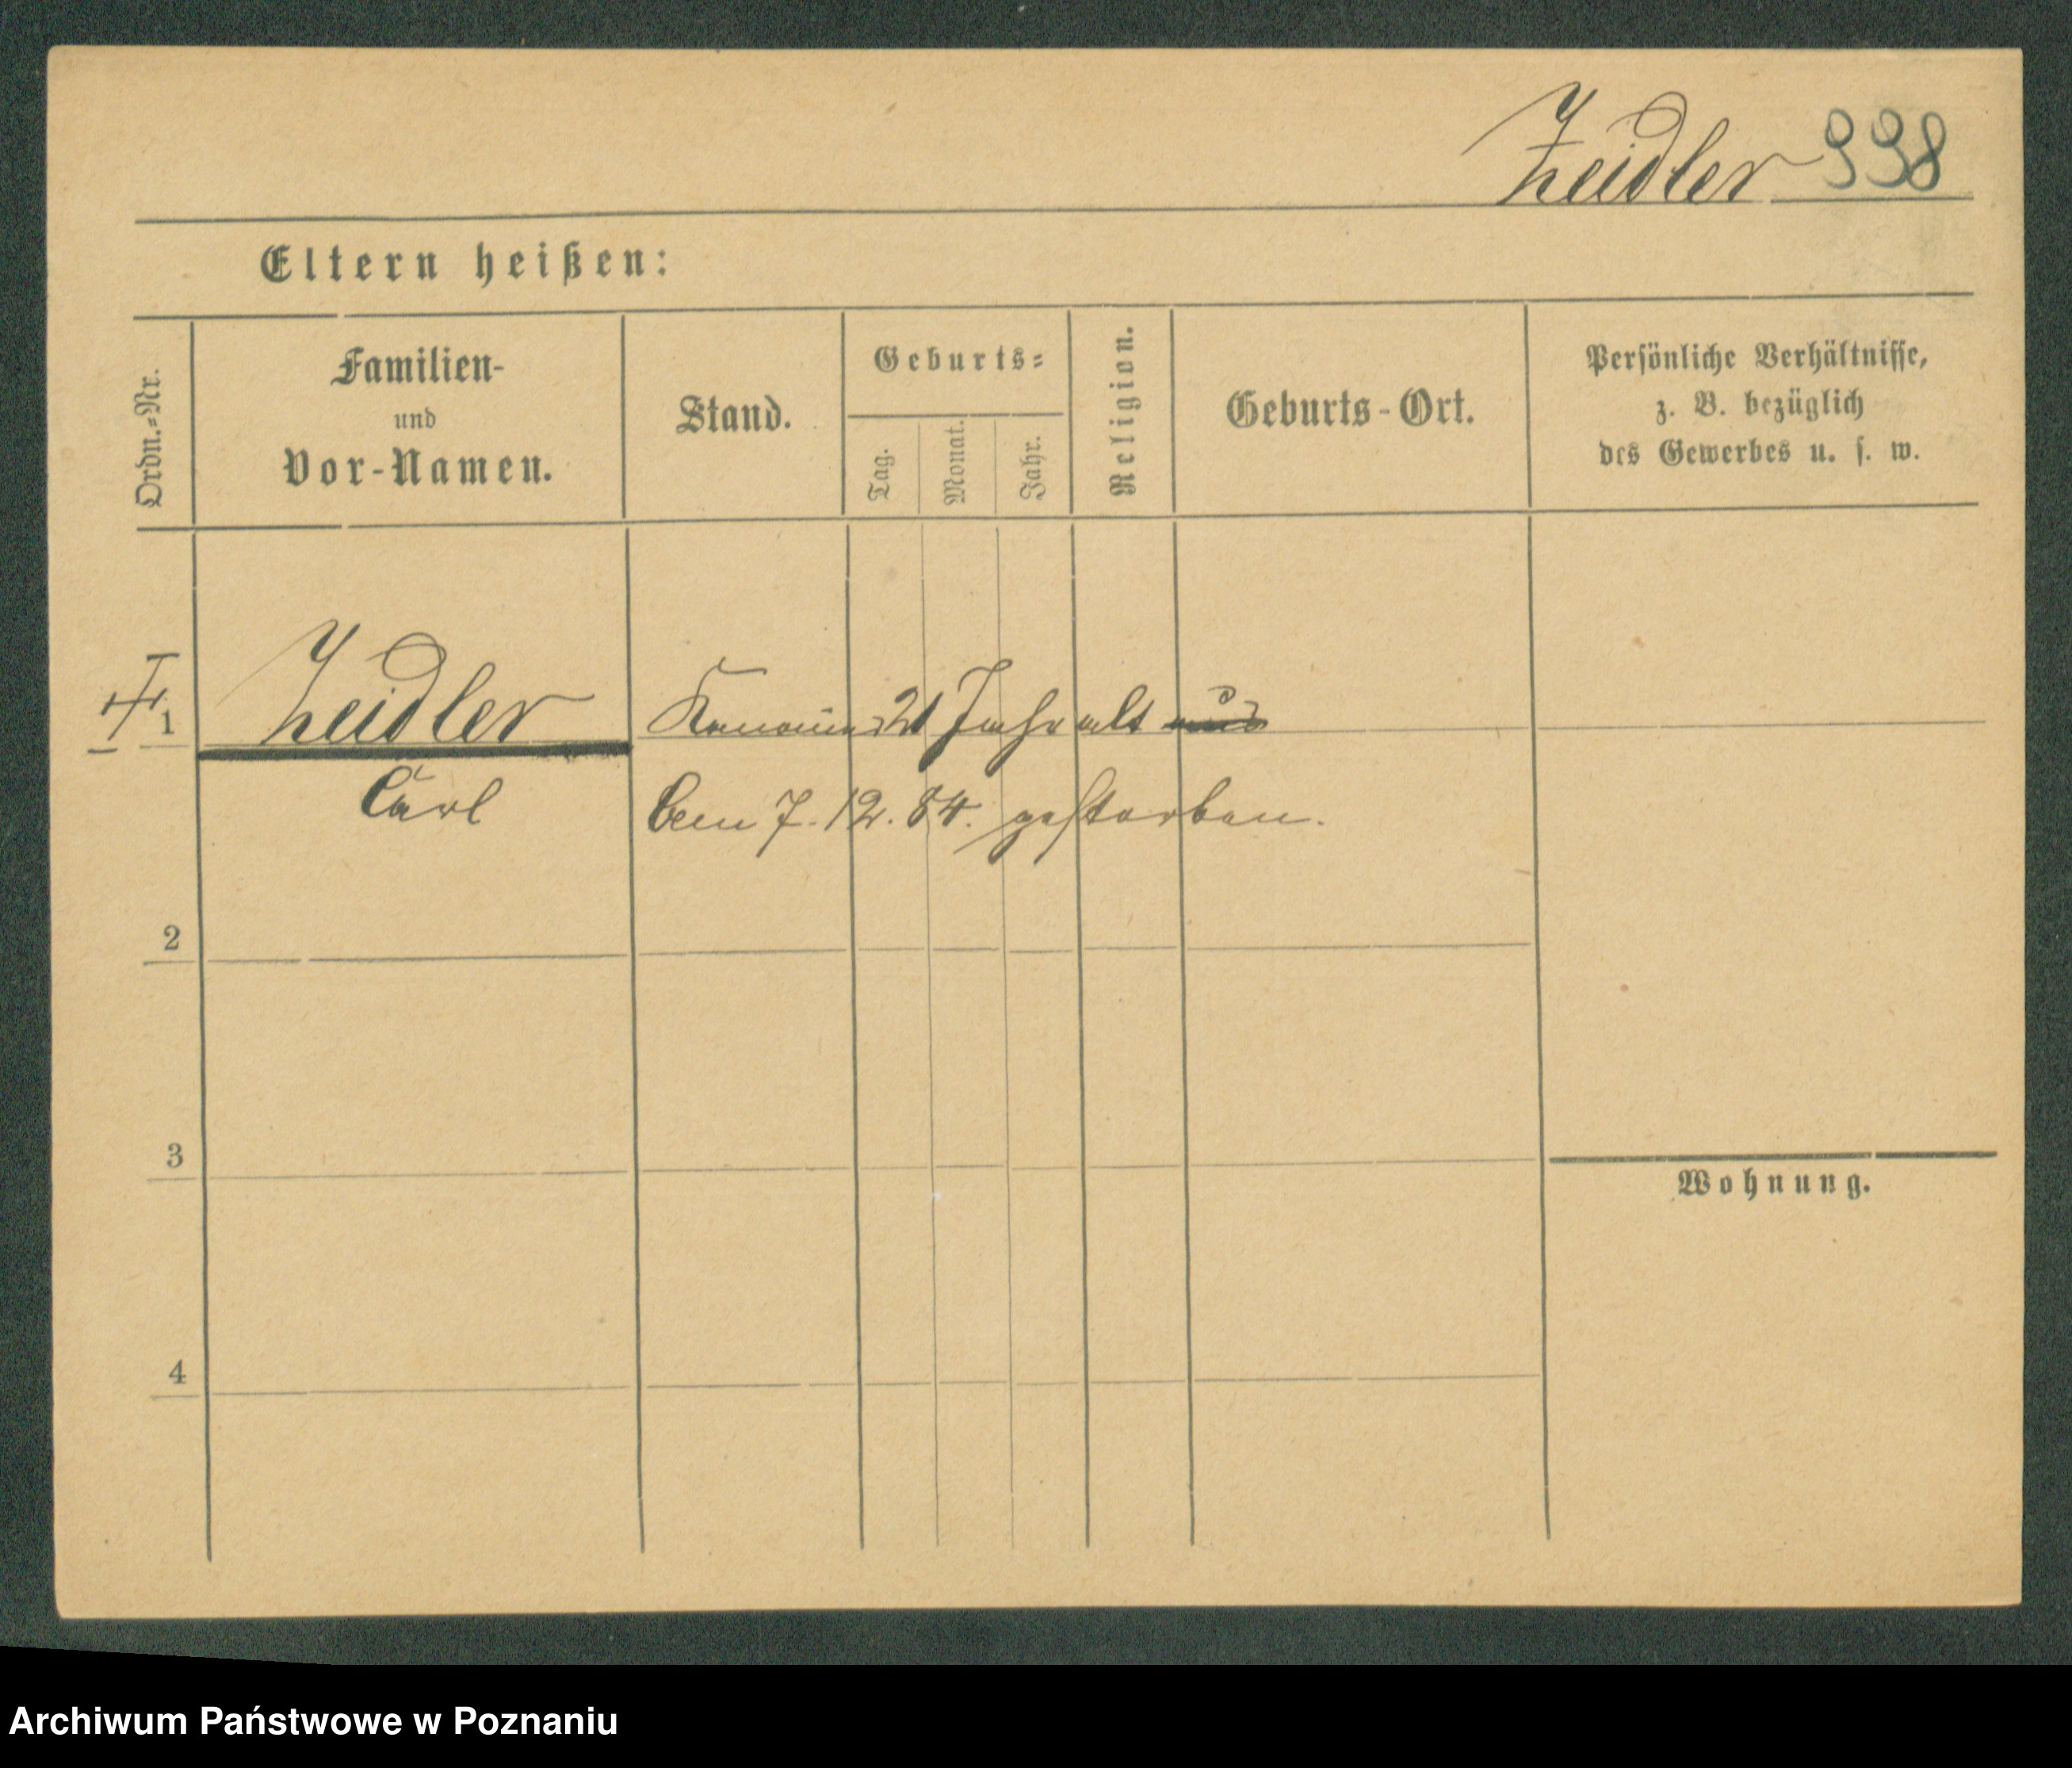 Zeidler 998
Eltern heißen:
Ordn.-Nr.
Familien-
und
Vor-Namen.
Stand.
Geburts-
Tag.
Monat.
Jahr.
Religion.
Geburts-Ort.
Persönliche Verhältnisse,
z. B. bezüglich
des Gewerbes u. s. w.
1 Zeidler 21 Jahr alt
Carl
7. 12. 84. gestorben.
2
3
Wohnung.
4
Archiwum Państwowe w Poznaniu